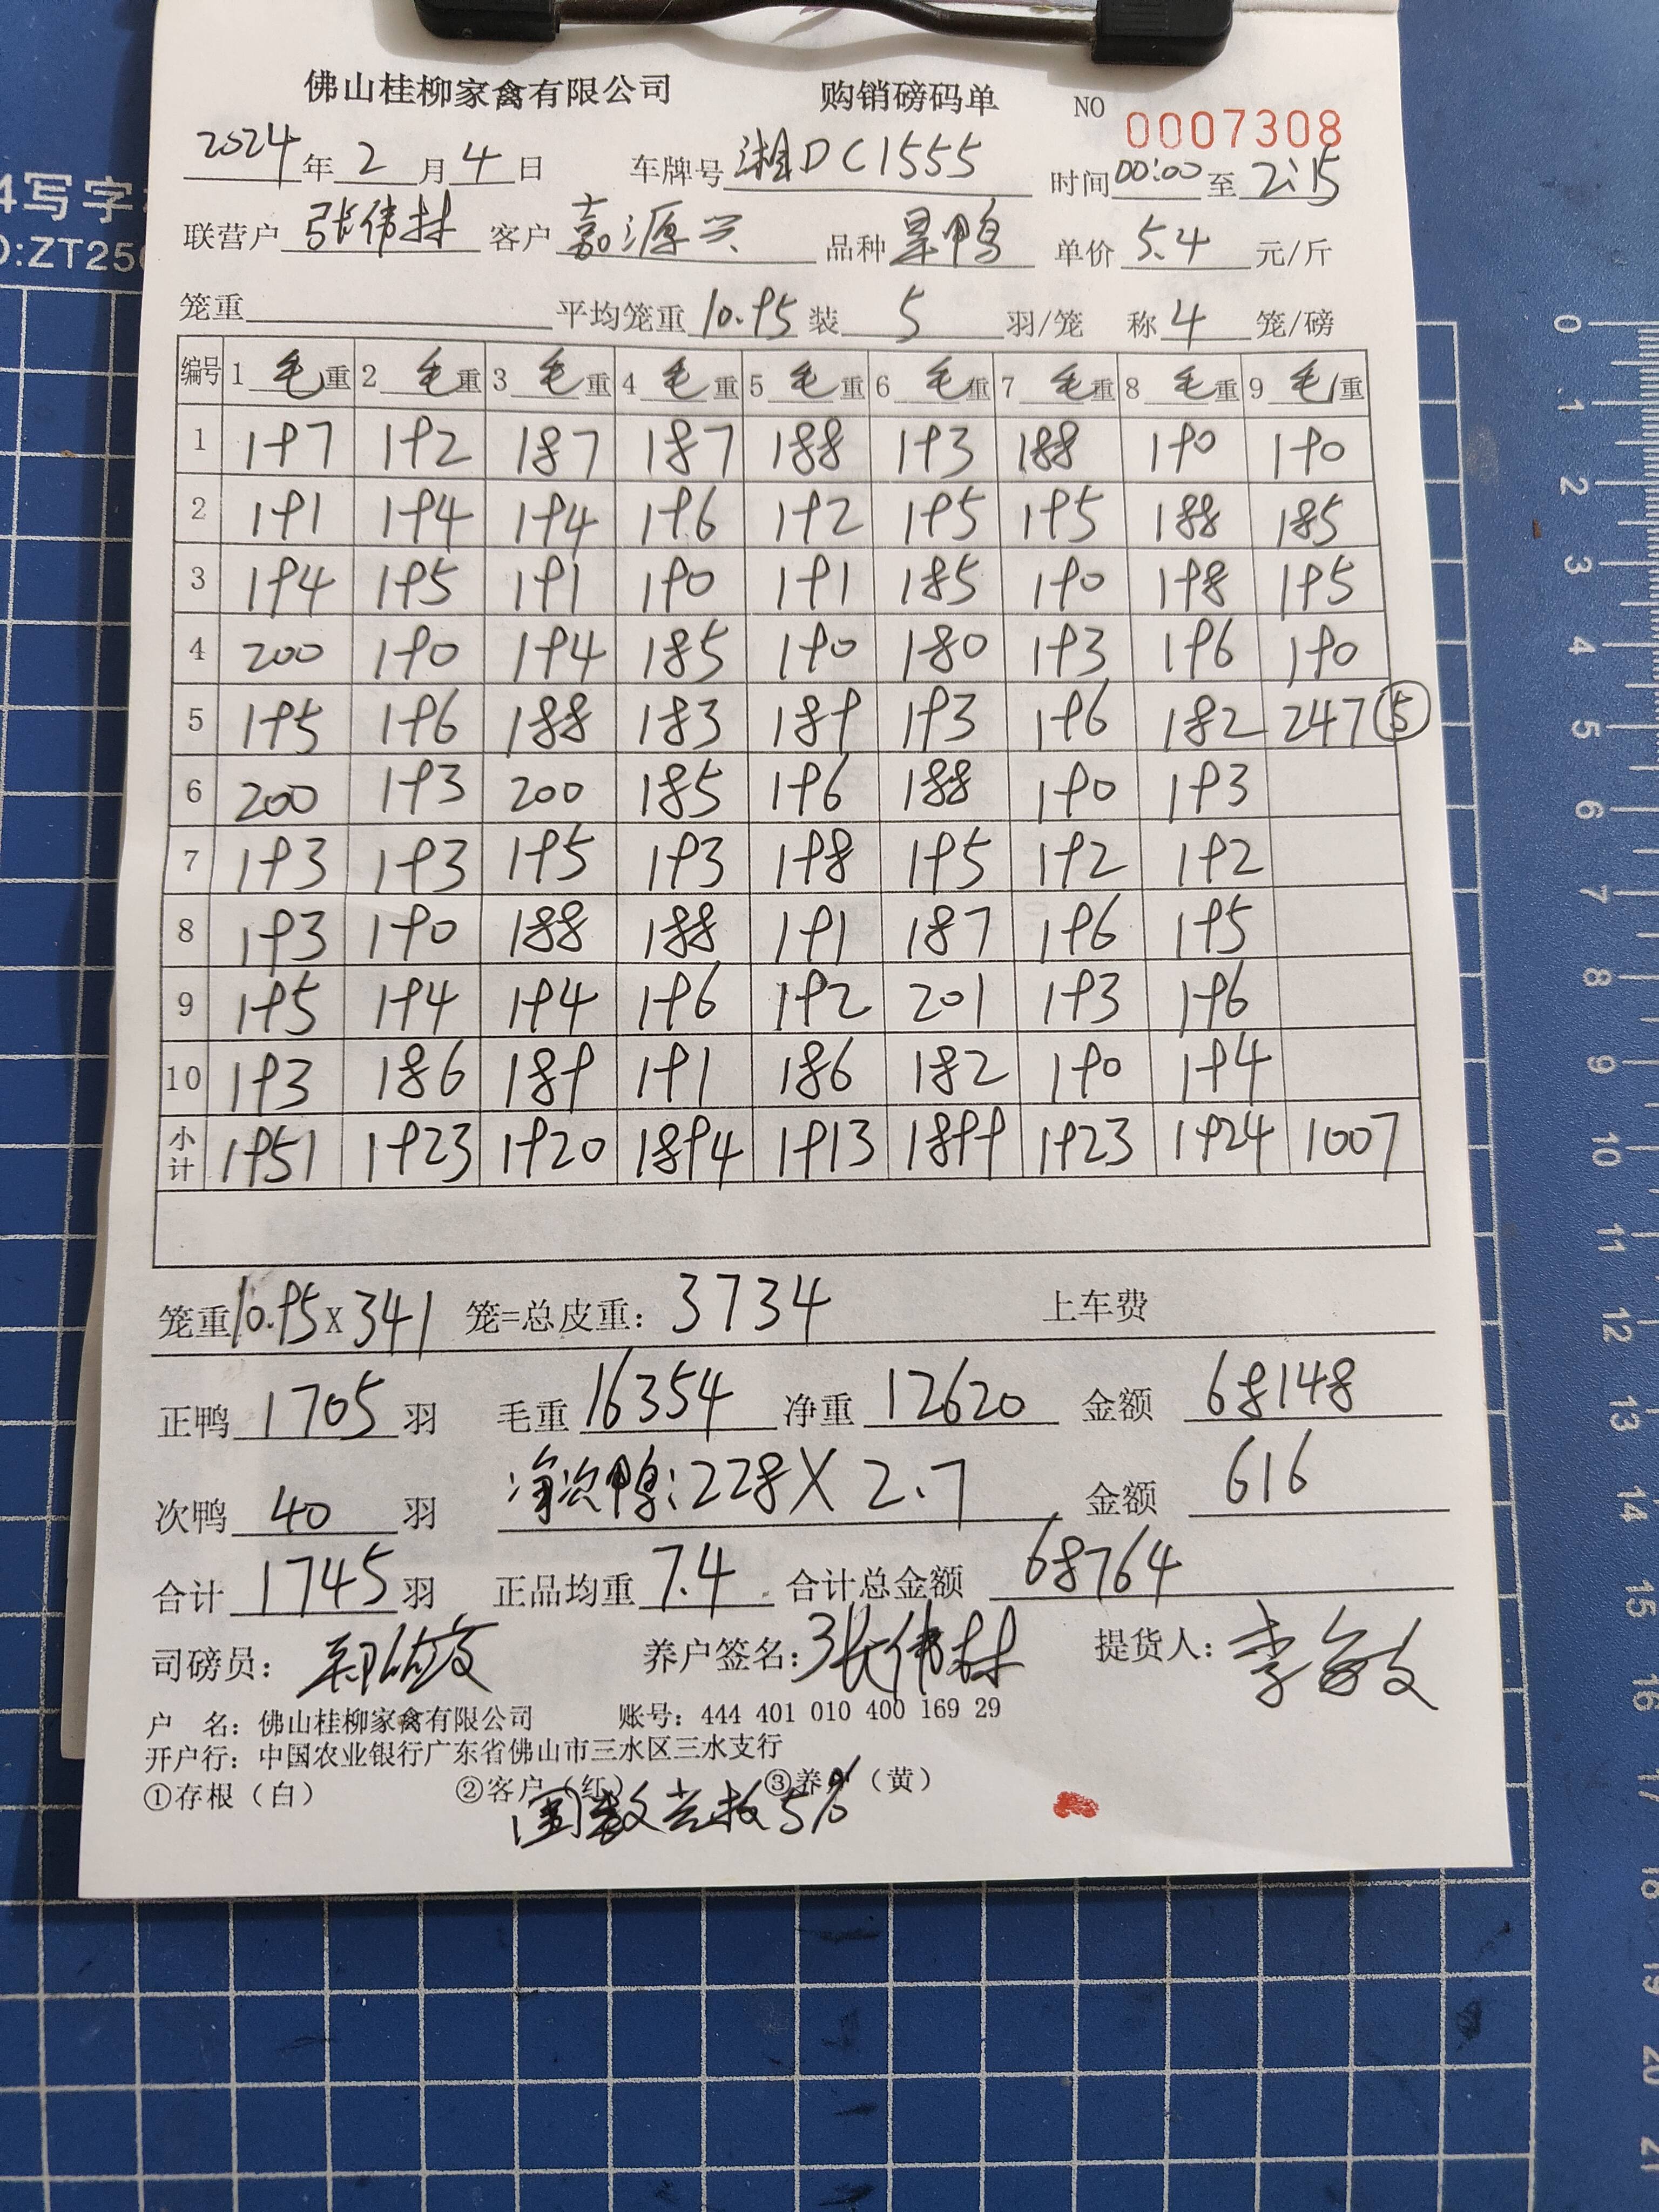 佛山桂柳家禽有限公司 购销磅码单 NO 0007308
2024年2月4日 车牌号 湘DC1555 时间 00:00 至 2:15
联营户 张伟林 客户 嘉源兴 品种 旱鸭 单价 5.4 元/斤
笼重 平均笼重 10.95 装 5 羽/笼 称 4 笼/磅
编号 1 毛重 2 毛重 3 毛重 4 毛重 5 毛重 6 毛重 7 毛重 8 毛重 9 毛重
1 197 192 187 187 188 193 188 190 190
2 191 194 194 196 192 195 195 188 185
3 194 195 191 190 191 185 190 198 195
4 200 190 194 185 190 180 193 196 190
5 195 196 188 183 189 193 196 182 247 ⑤
6 200 193 200 185 196 188 190 193
7 193 193 195 193 198 195 192 192
8 193 190 188 188 191 187 196 195
9 195 194 194 196 192 201 193 196
10 193 186 189 191 186 182 190 194
小计 1951 1923 1920 1894 1913 1899 1923 1924 1007
笼重 10.95 X 341 笼=总皮重: 3734 上车费
正鸭 1705 羽 毛重 16354 净重 12620 金额 68148
次鸭 40 羽 净次鸭:228 X 2.7 金额 616
合计 1745 羽 正品均重 7.4 合计总金额 68764
司磅员: 养户签名: 张伟林 提货人: 李敏
户 名: 佛山桂柳家禽有限公司 账号: 444 401 010 400 169 29
开户行: 中国农业银行广东省佛山市三水区三水支行
①存根（白） ②客户（红） ③养户（黄）
5%